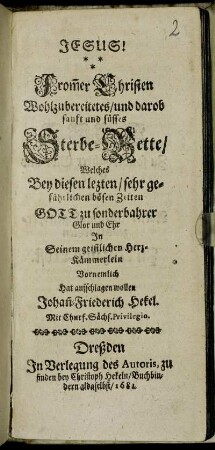 2
JESUS!
* * *
From̃er Christen
Wohlzubereitetes/und darob
sanft und süsses
Sterbe-Bette/
Welches
Bey diesen lezten/sehr ge-
fährlichen bösen Zeiten
GOTT zu sonderbahrer
Glor und Ehr
In
Seinem geistlichen Herz-
Kämmerlein
Vornemlich
Hat aufschlagen wollen
Johañ-Friederich Hekel.
Mit Churf. Sächs. Privilegio.
Dreßden
In Verlegung des Autoris, zu
finden bey Christoph Hekeln/Buchbin-
dern aldaselbst/1681.